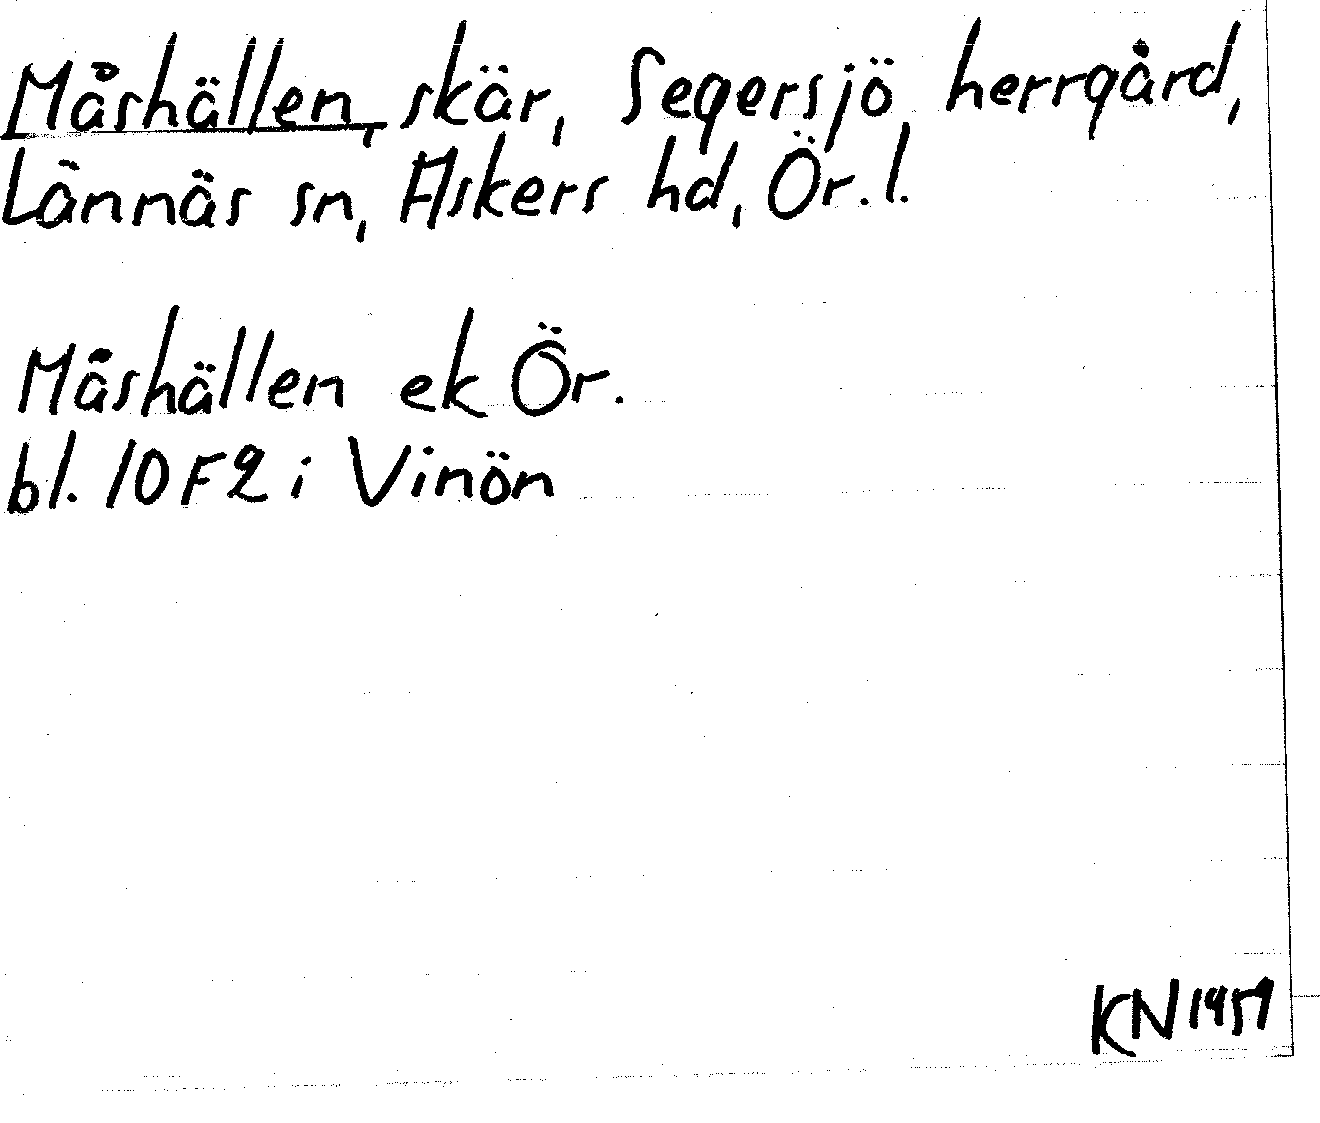 Måshällen, skär, Segersjö, herrgård,
Lännäs sn, Askers hd, Ör. l.
Måshällen ek Ör.
bl. 10 F 2 i Vinön
KN 1957